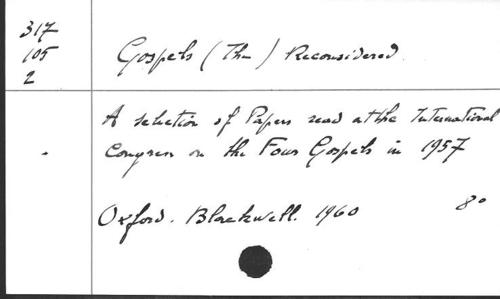 317
105
2
Gospels (The) Reconsidered.
A selection of Papers read at the International
Congress on the Four Gospels in 1957
Oxford. Blackwell. 1960 8°